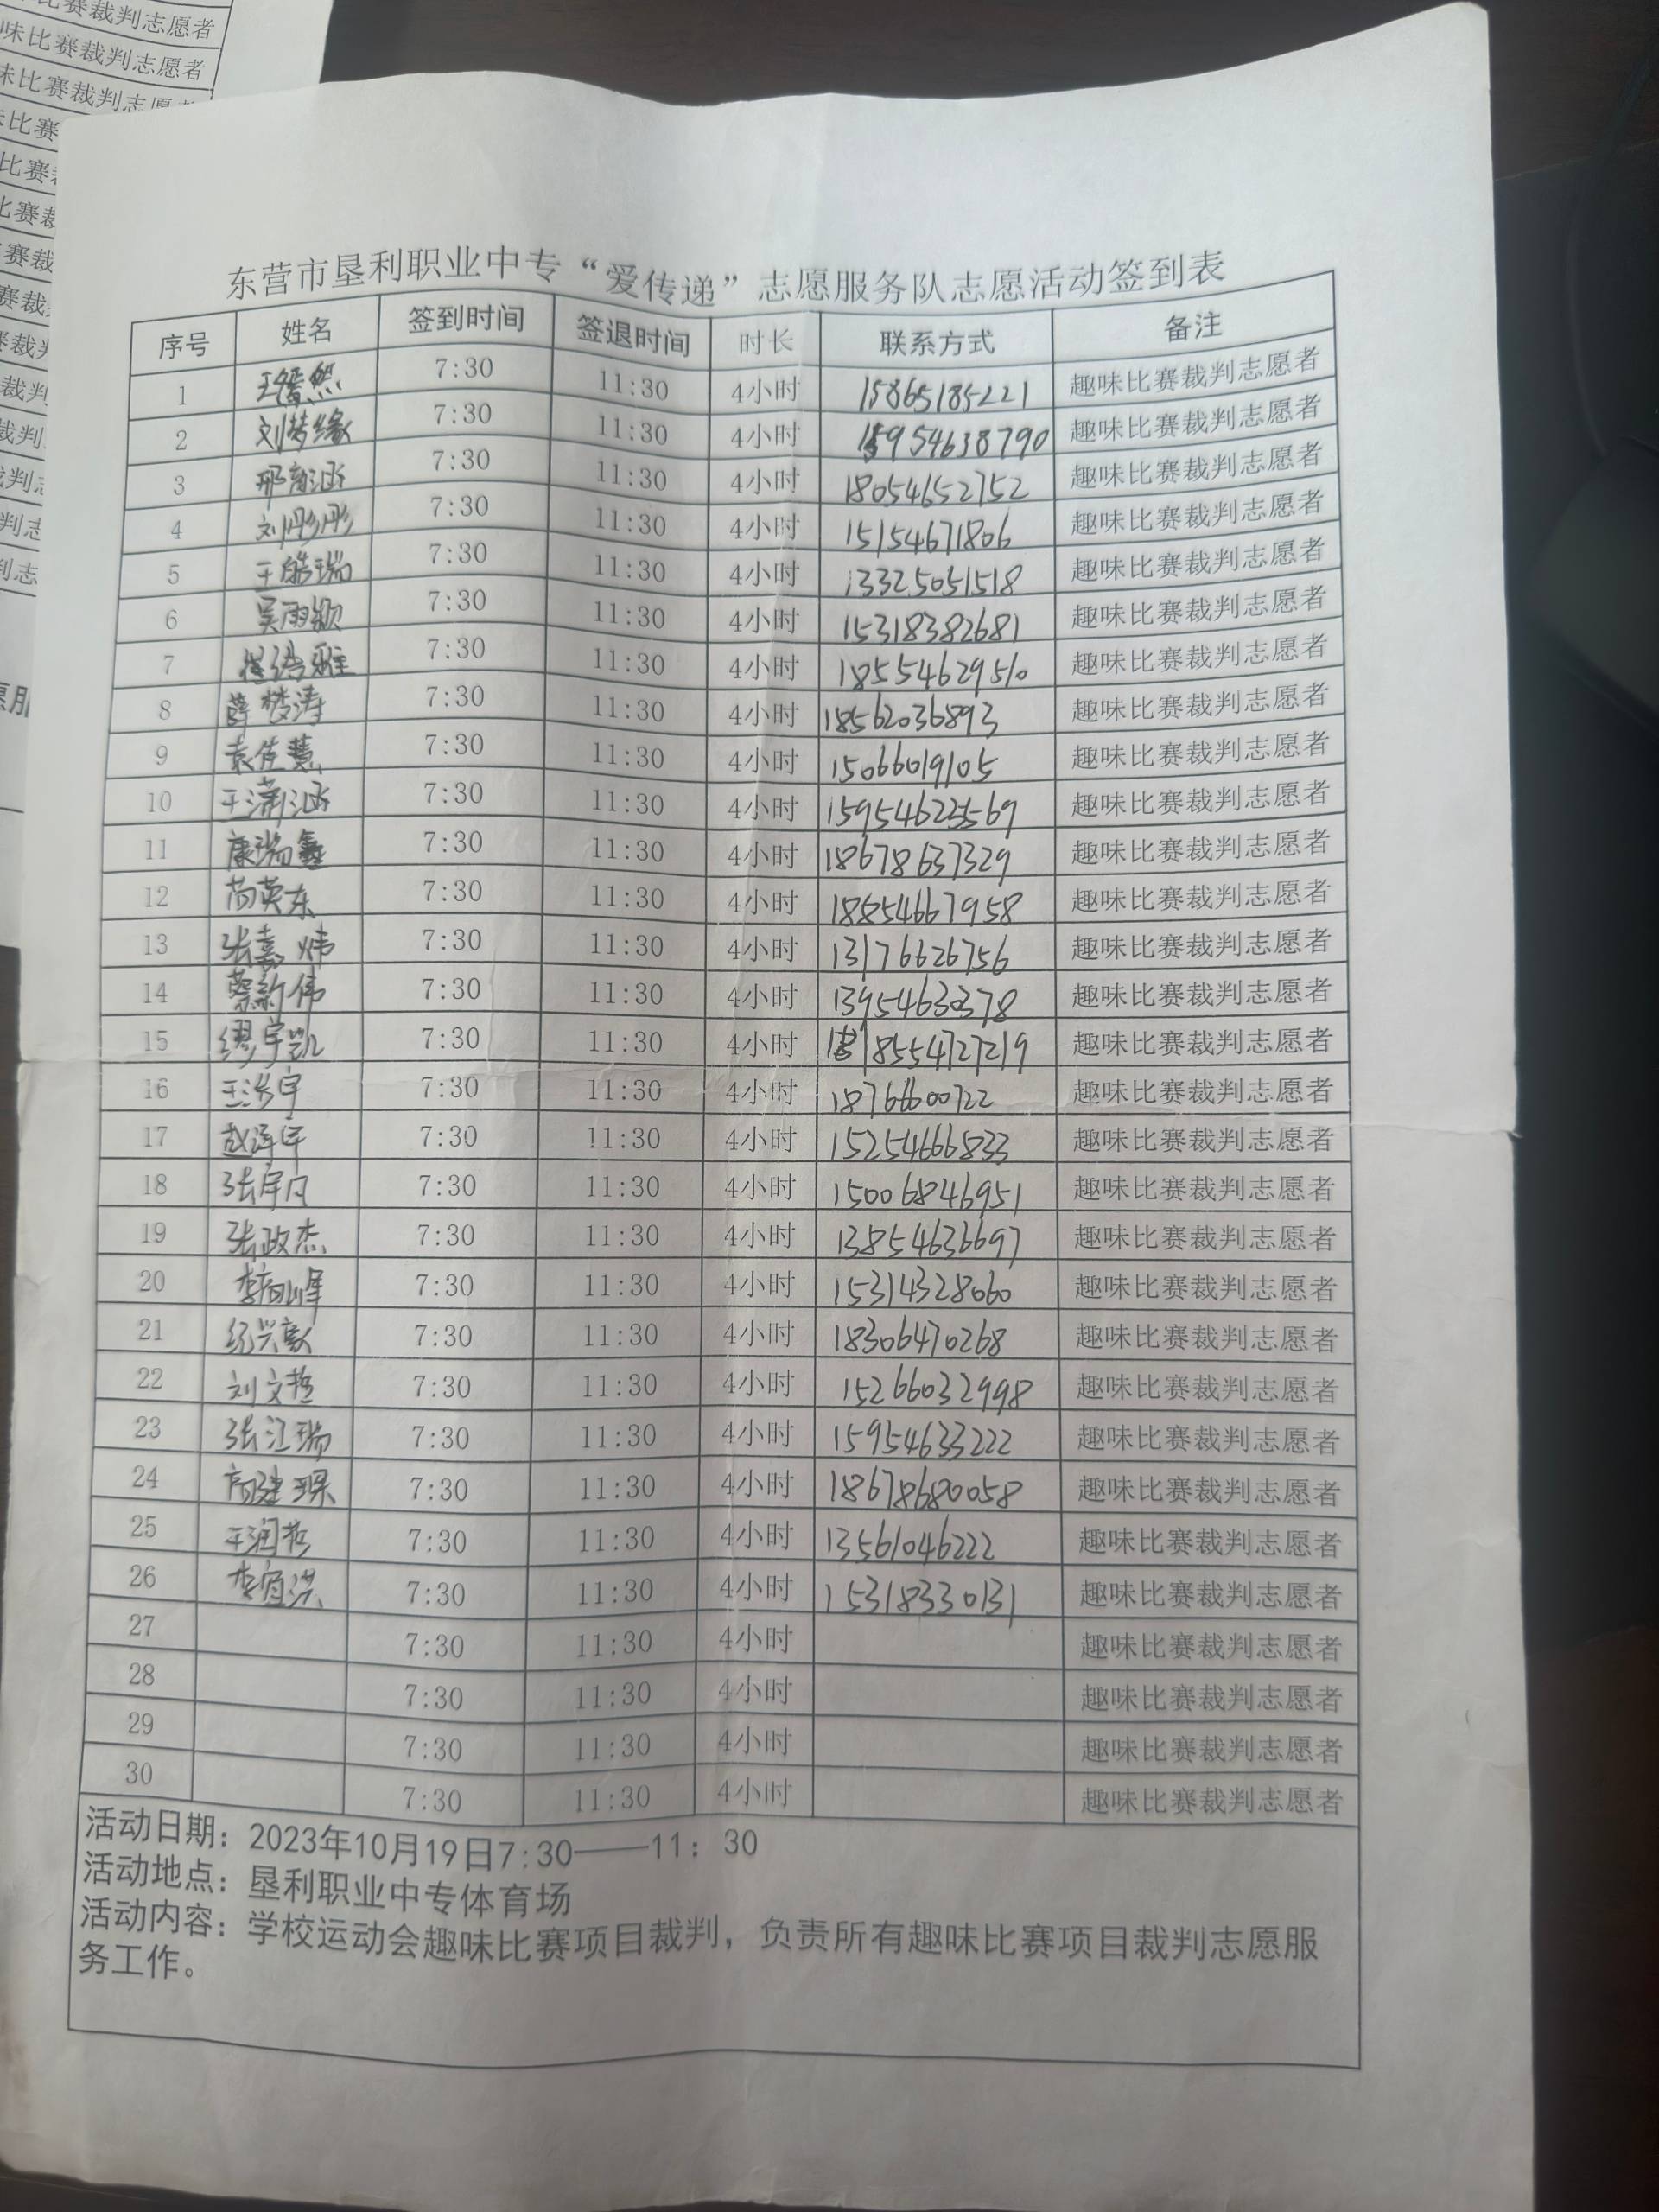 比赛裁判志愿者
味比赛裁判志愿者
味比赛裁判志愿
比赛
东营市垦利职业中专“爱传递”志愿服务队志愿活动签到表
序号 姓名 签到时间 签退时间 时长 联系方式 备注
1 王嫣然 7:30 11:30 4小时 15865185221 趣味比赛裁判志愿者
2 刘梦缘 7:30 11:30 4小时 15954638790 趣味比赛裁判志愿者
3 邢 涵 7:30 11:30 4小时 18054652752 趣味比赛裁判志愿者
4 刘彤彤 7:30 11:30 4小时 15154671806 趣味比赛裁判志愿者
5 王皓瑞 7:30 11:30 4小时 13325051518 趣味比赛裁判志愿者
6 吴雨颖 7:30 11:30 4小时 15318382681 趣味比赛裁判志愿者
7 7:30 11:30 4小时 18554629510 趣味比赛裁判志愿者
8 薛梦涛 7:30 11:30 4小时 18562036893 趣味比赛裁判志愿者
9 袁佳慧 7:30 11:30 4小时 15066019105 趣味比赛裁判志愿者
10 王潇涵 7:30 11:30 4小时 趣味比赛裁判志愿者
11 康瑞鑫 7:30 11:30 4小时 18678637329 趣味比赛裁判志愿者
12 尚英东 7:30 11:30 4小时 18854667958 趣味比赛裁判志愿者
13 张嘉炜 7:30 11:30 4小时 13176626756 趣味比赛裁判志愿者
14 蔡新伟 7:30 11:30 4小时 13954630378 趣味比赛裁判志愿者
15 缪宇凯 7:30 11:30 4小时 18554727219 趣味比赛裁判志愿者
16 王浩宇 7:30 11:30 4小时 18766600722 趣味比赛裁判志愿者
17 赵泽宇 7:30 11:30 4小时 15254666833 趣味比赛裁判志愿者
18 张宇凡 7:30 11:30 4小时 15006846951 趣味比赛裁判志愿者
19 张政杰 7:30 11:30 4小时 13854636697 趣味比赛裁判志愿者
20 李向峰 7:30 11:30 4小时 15314328060 趣味比赛裁判志愿者
21 纪兴毅 7:30 11:30 4小时 18306470268 趣味比赛裁判志愿者
22 刘文哲 7:30 11:30 4小时 15266032998 趣味比赛裁判志愿者
23 张江瑞 7:30 11:30 4小时 15954633222 趣味比赛裁判志愿者
24 商建琛 7:30 11:30 4小时 18678680058 趣味比赛裁判志愿者
25 王润哲 7:30 11:30 4小时 13561046222 趣味比赛裁判志愿者
26 李宜洪 7:30 11:30 4小时 15318330131 趣味比赛裁判志愿者
27 7:30 11:30 4小时 趣味比赛裁判志愿者
28 7:30 11:30 4小时 趣味比赛裁判志愿者
29 7:30 11:30 4小时 趣味比赛裁判志愿者
30 7:30 11:30 4小时 趣味比赛裁判志愿者
活动日期：2023年10月19日7:30——11：30
活动地点：垦利职业中专体育场
活动内容：学校运动会趣味比赛项目裁判，负责所有趣味比赛项目裁判志愿服
务工作。